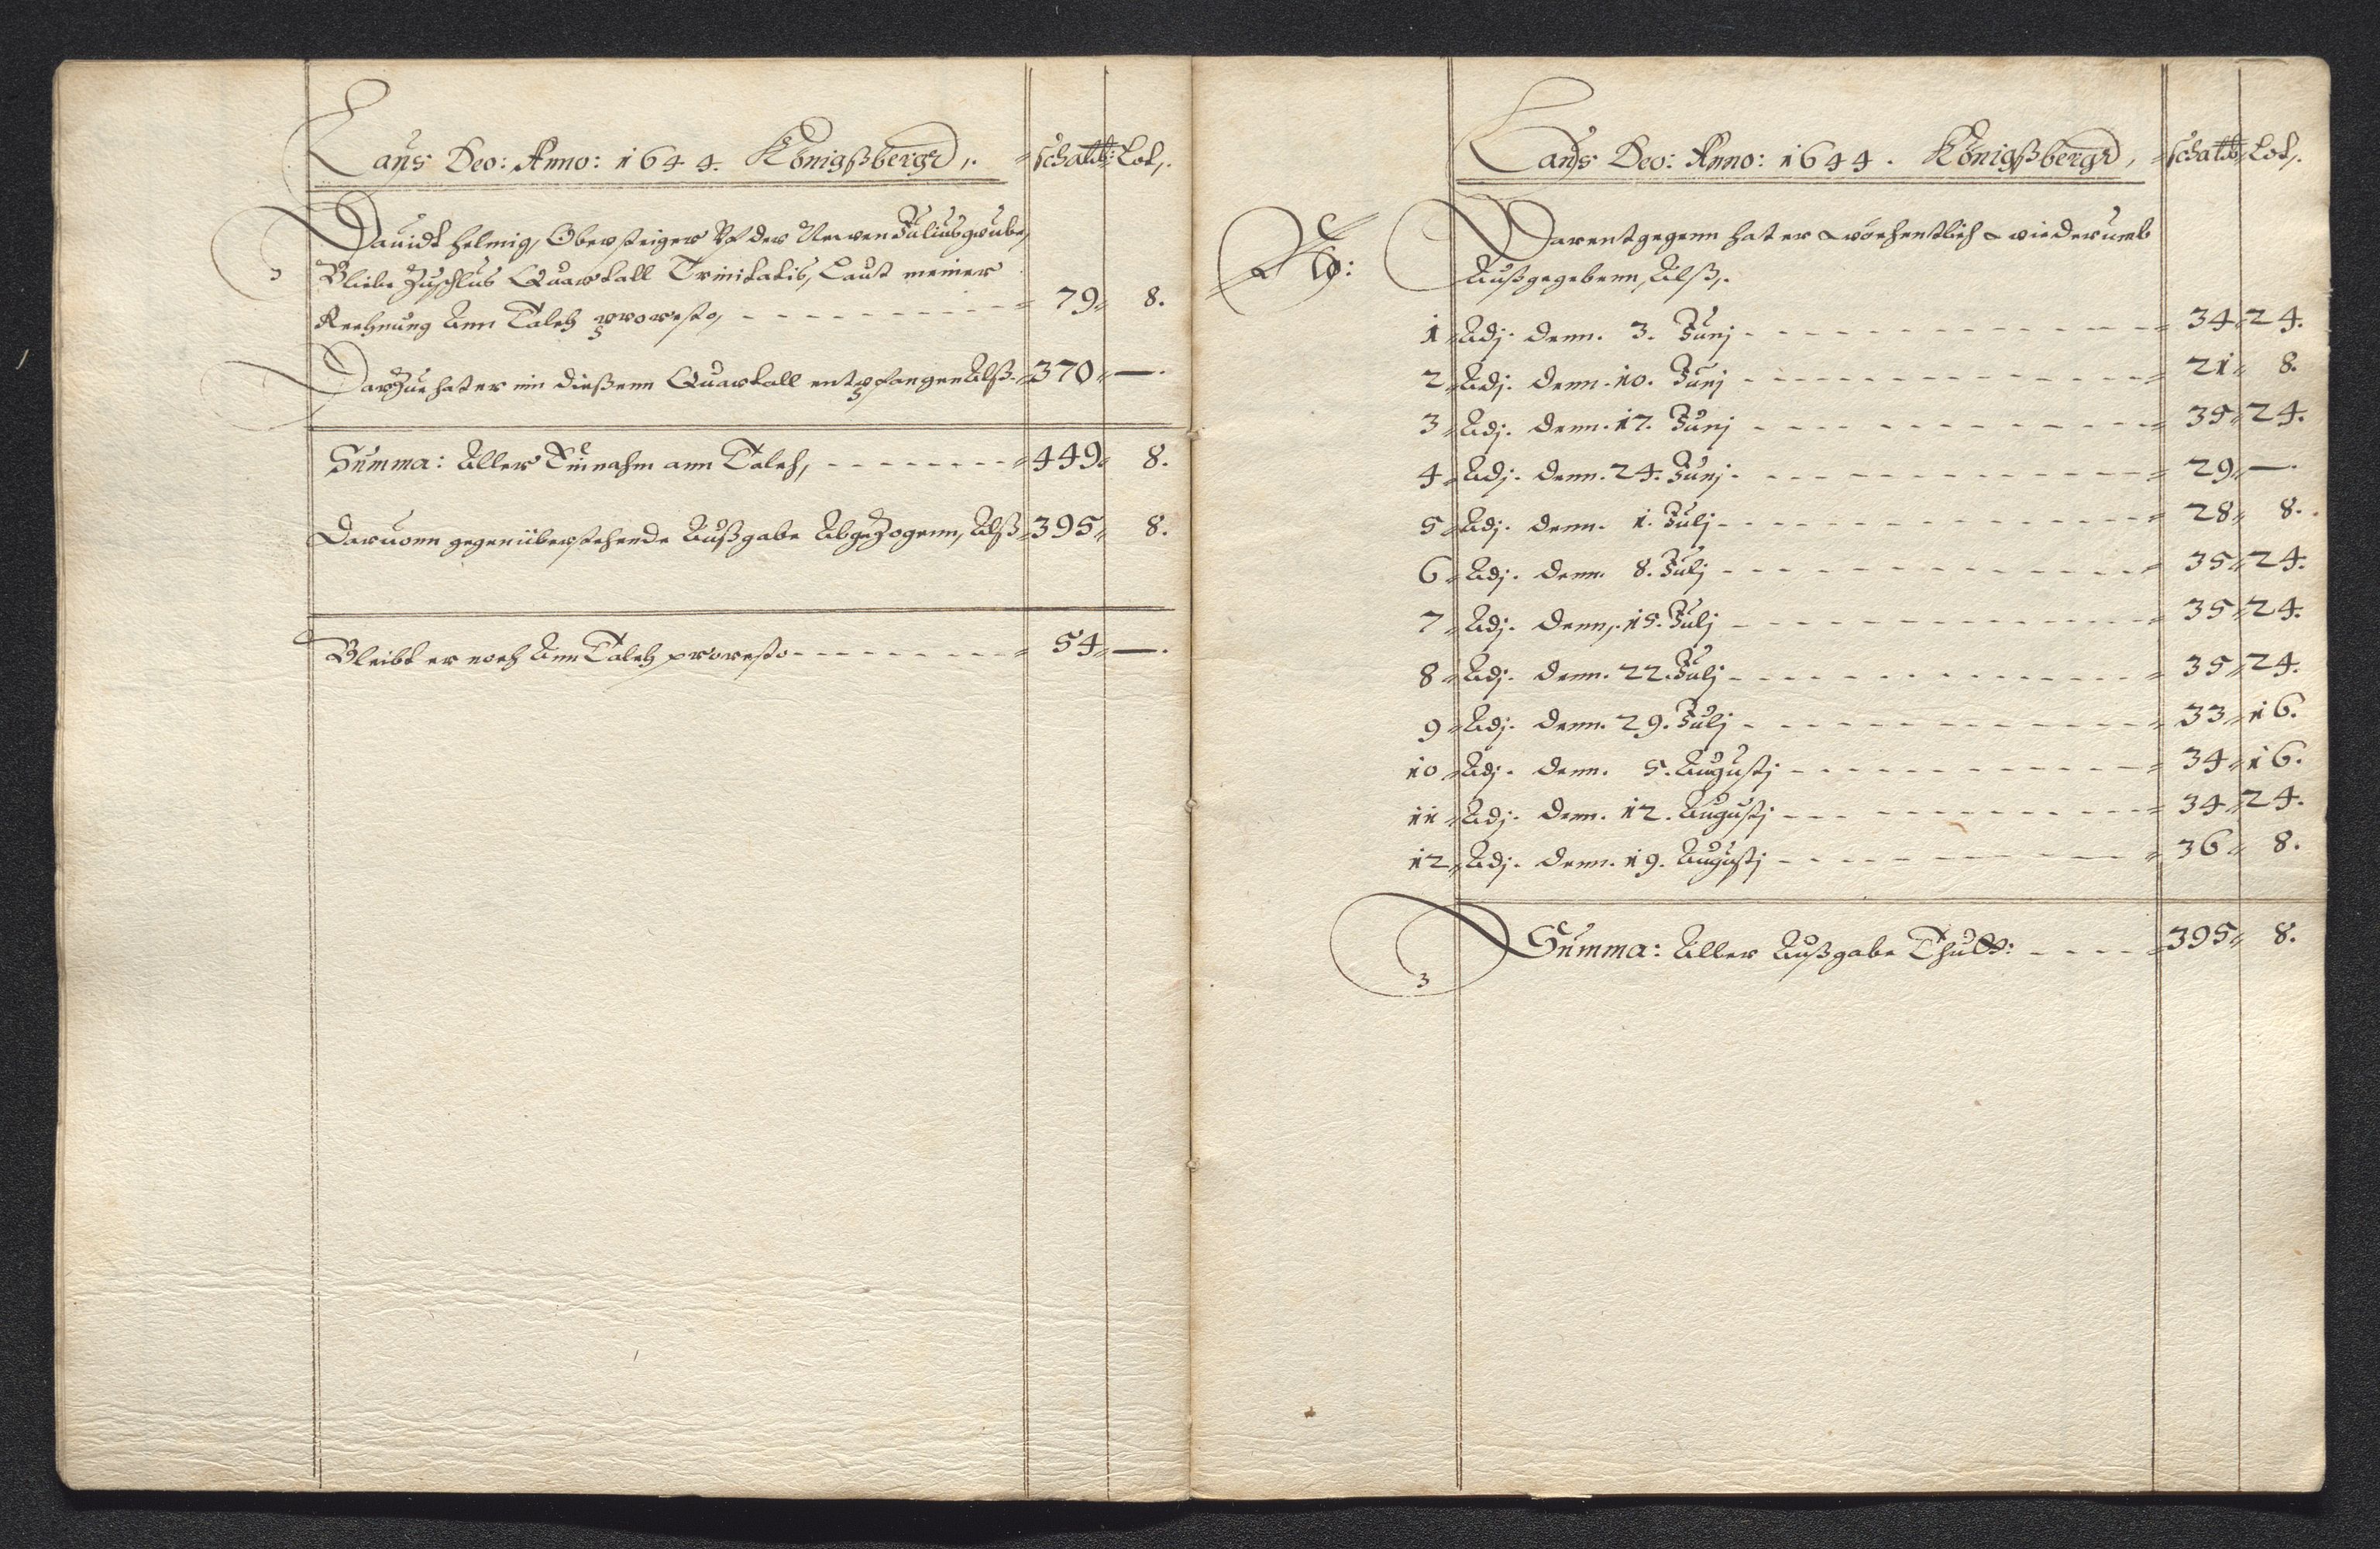 Laus Deo: Anno: 1644. Königßbergk, schaltt: Lot,.
Dauidt Helmig, Obersteiger Vf der Neuen Juliusgrube,
Bliebe Zuschlus Quartall Trinitatis, Laut meiner
Rechnung Ann Talch prorest, 79 8.
DarZue hat er inn dießenn Quartall entpfangen Alß 370 —.
Summa: Aller Einnahm ann Talch, 449 8.
Daruonn gegenüberstehende Außgabe AbgeZogenn, Alß 395 8.
Bleibt er noch Ann Talch proresto 54 —.
Laus Deo: Anno: 1644. Königßbergk, schaltt: Lot,.
Darentgegenn hat er wöchentlich wiederumb
Außgegebenn, Alß,.
1 Adj. denn. 3. Junj 34 24.
2 Adj. denn. 10. Junj 21 8.
3 Adj. denn. 17. Junj 35 24.
4 Adj. denn. 24. Junj. 29 —.
5 Adj. denn. 1. Julj 28 8.
6 Adj. denn. 8. Julj 35 24.
7 Adj. denn,. 15. Julj 35 24.
8 Adj. denn. 22. Julj 35 24.
9 Adj. denn. 29. Julj 33 16.
10 Adj. denn. 5. Augustj 34 16.
11 Adj. denn. 12. Augustj 34 24.
12 Adj. denn. 19. Augustj 36 8.
Summa: Aller Außgabe Thutt: 395 8.